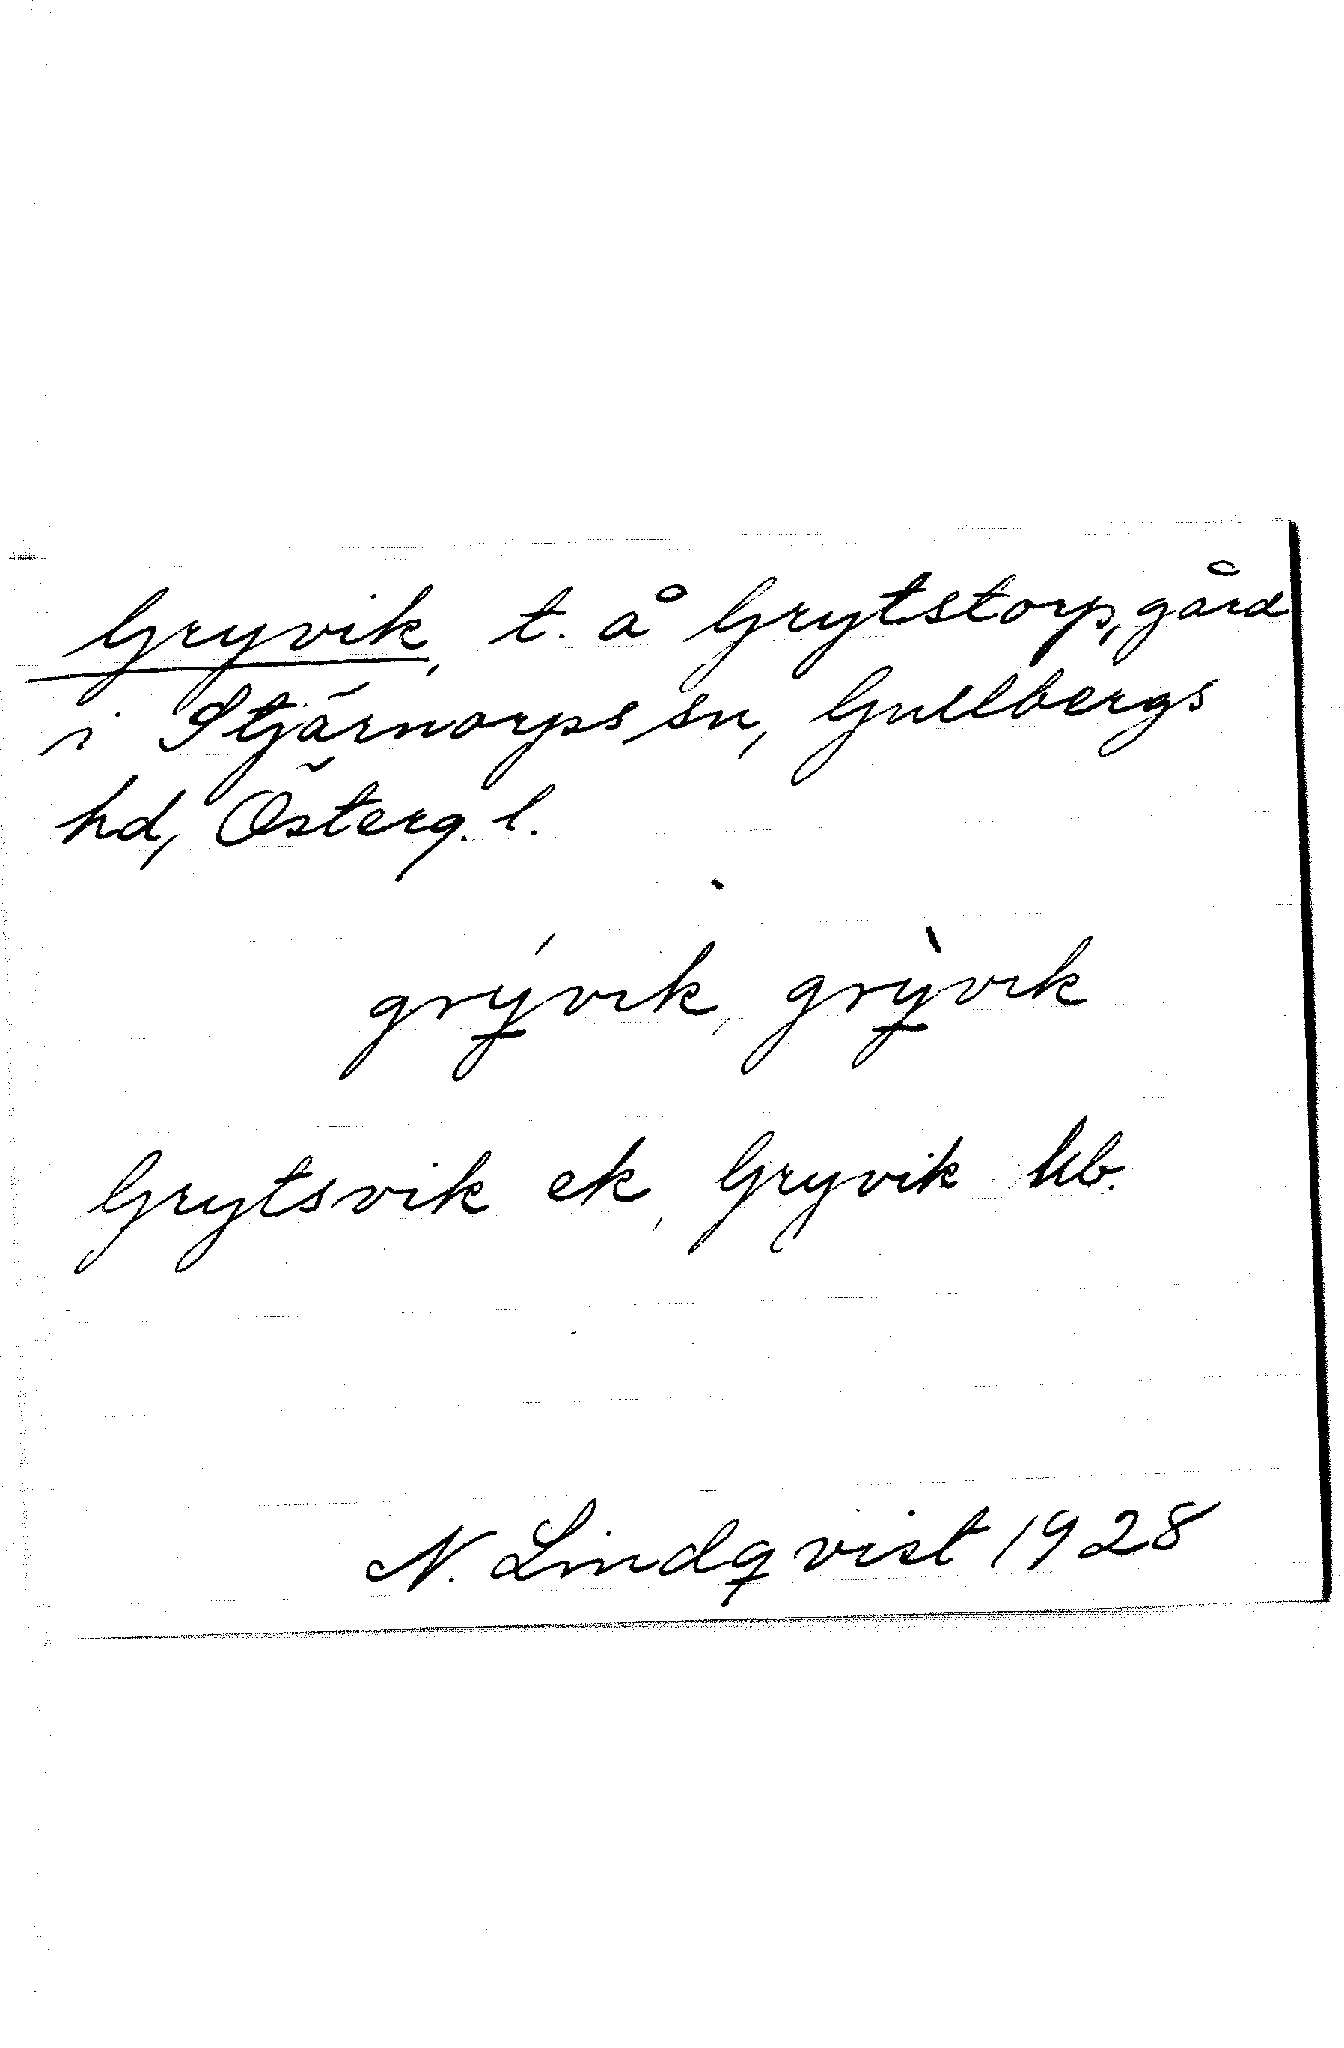 Gryvik, t. å Grytstorp, gård
i Stjärnorps sn, Gullbergs
hd, Österg. l.
grývik, grỳvik
Grytsvik ek, Gryvik kb.
N. Lindqvist 1928